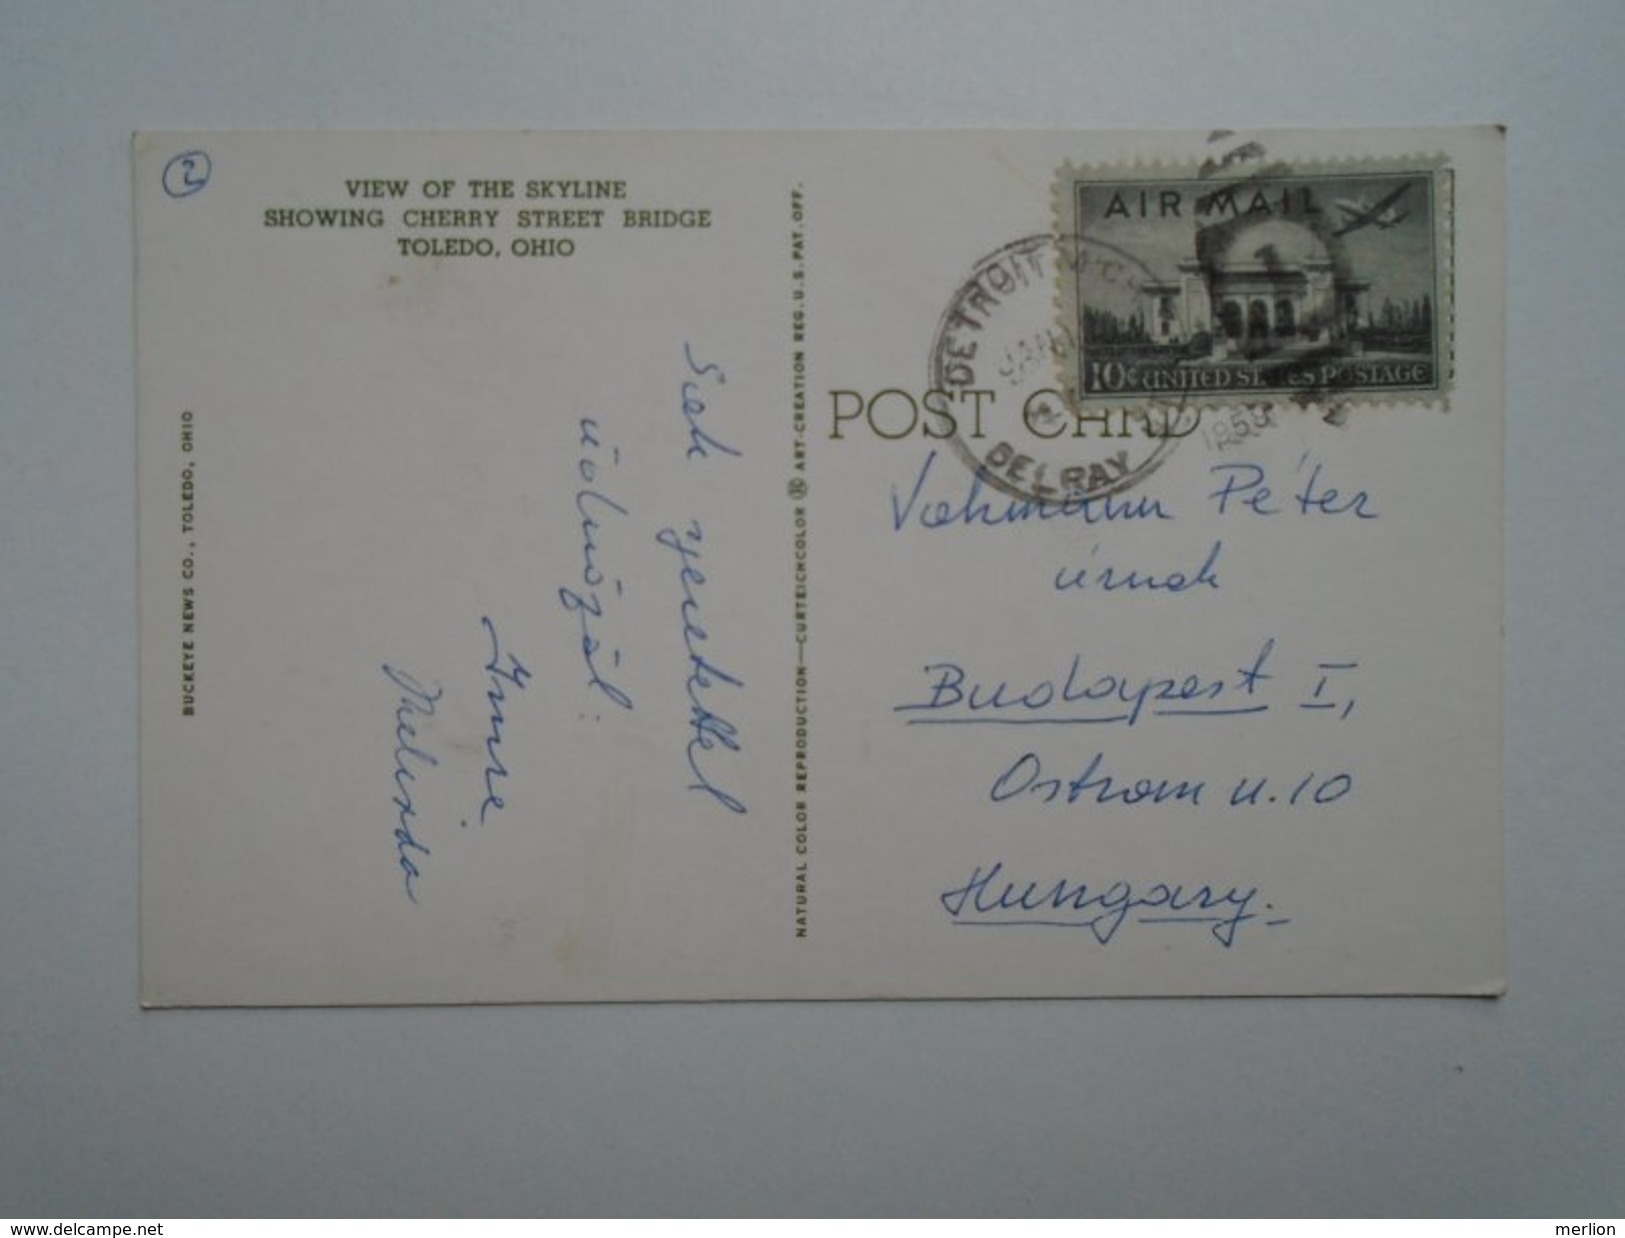 2
VIEW OF THE SKYLINE
SHOWING CHERRY STREET BRIDGE
TOLEDO, OHIO
BUCKEYE NEWS CO., TOLEDO, OHIO
Sok
üdvözöl:
Imre
Melinda
NATURAL COLOR REPRODUCTION—CURTEICHCOLOR ® ART-CREATION REG. U.S. PAT. OFF.
POST CARD
AIR MAIL
10¢ UNITED STATES POSTAGE
DETROIT MICH
JAN
1958
DELRAY
Péter
úrnak
Budapest I,
Ostrom u. 10
Hungary.
www.delcampe.net
merlion